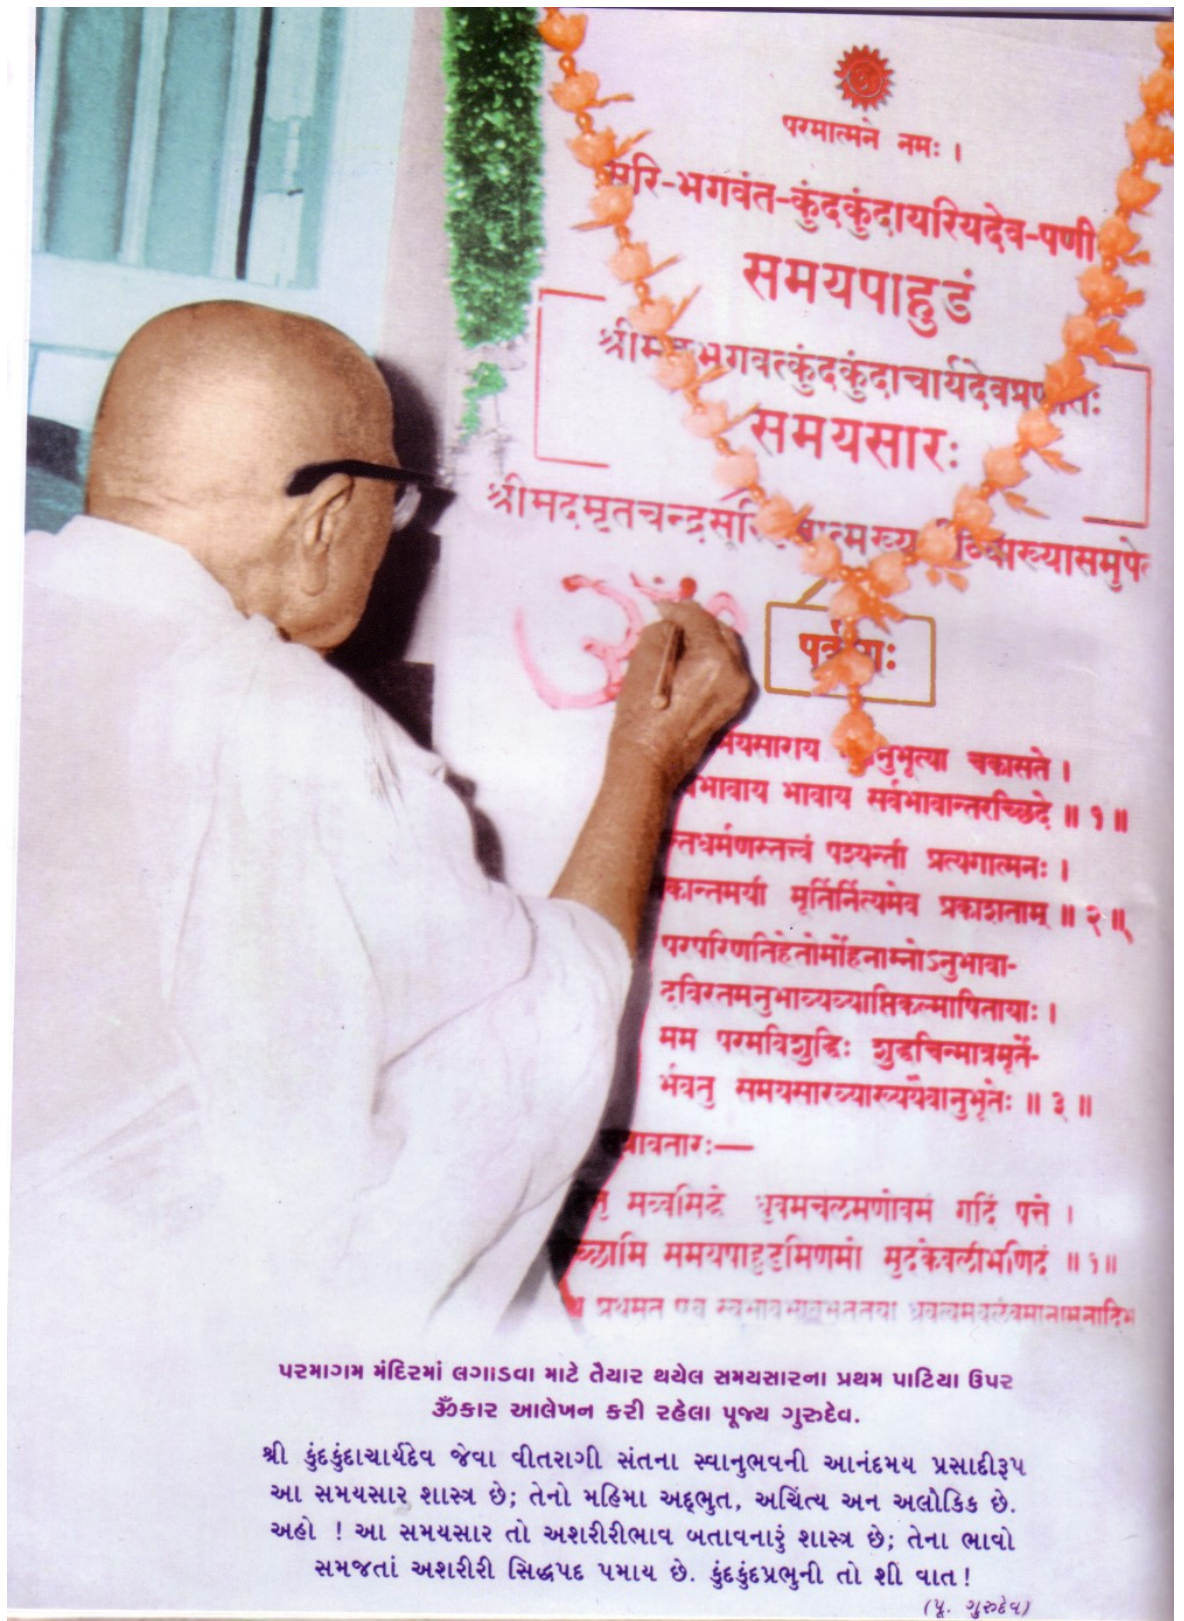 परमात्मने नमः ।
सिरि-भगवंत-कुंदकुंदायरियदेव-पणी
समयपाहुडं
श्रीमद्भगवत्कुंदकुंदाचार्यदेवप्रणीतः
समयसारः
श्रीमदमृतचन्द्रसूरि
ॐ
पूर्वरंगः
मयसाराय नुभूत्या चकासते ।
भावाय भावाय सर्वभावान्तरच्छिदे ॥ १ ॥
न्तधर्मणस्तत्त्वं पश्यन्ती प्रत्यगात्मनः ।
कान्तमयी मूर्तिर्नित्यमेव प्रकाशताम् ॥ २ ॥
परपरिणतिहेतोर्मोहनाम्नोऽनुभावा-
दविरतमनुभाव्यव्याप्तिकल्माषितायाः ।
मम परमविशुद्धिः शुद्धचिन्मात्रमूर्ते-
र्भवतु समयसारव्याख्ययैवानुभूतेः ॥ ३ ॥
त्रावतारः—
ध्रुवमचलमणोवमं गदिं पत्ते ।
च्छामि समयपाहुडमिणमो सुदकेवलीभणिदं ॥ १ ॥
પરમાગમ મંદિરમાં લગાડવા માટે તૈયાર થયેલ સમયસારના પ્રથમ પાટિયા ઉપર
ૐકાર આલેખન કરી રહેલા પૂજ્ય ગુરુદેવ.
શ્રી કુંદકુંદાચાર્યદેવ જેવા વીતરાગી સંતના સ્વાનુભવની આનંદમય પ્રસાદીરૂપ
આ સમયસાર શાસ્ત્ર છે; તેનો મહિમા અદ્ભુત, અચિંત્ય અન અલૌકિક છે.
અહો ! આ સમયસાર તો અશરીરીભાવ બતાવનારું શાસ્ત્ર છે; તેના ભાવો
સમજતાં અશરીરી સિદ્ધપદ પમાય છે. કુંદકુંદપ્રભુની તો શી વાત!
(પૂ. ગુરુદેવ)